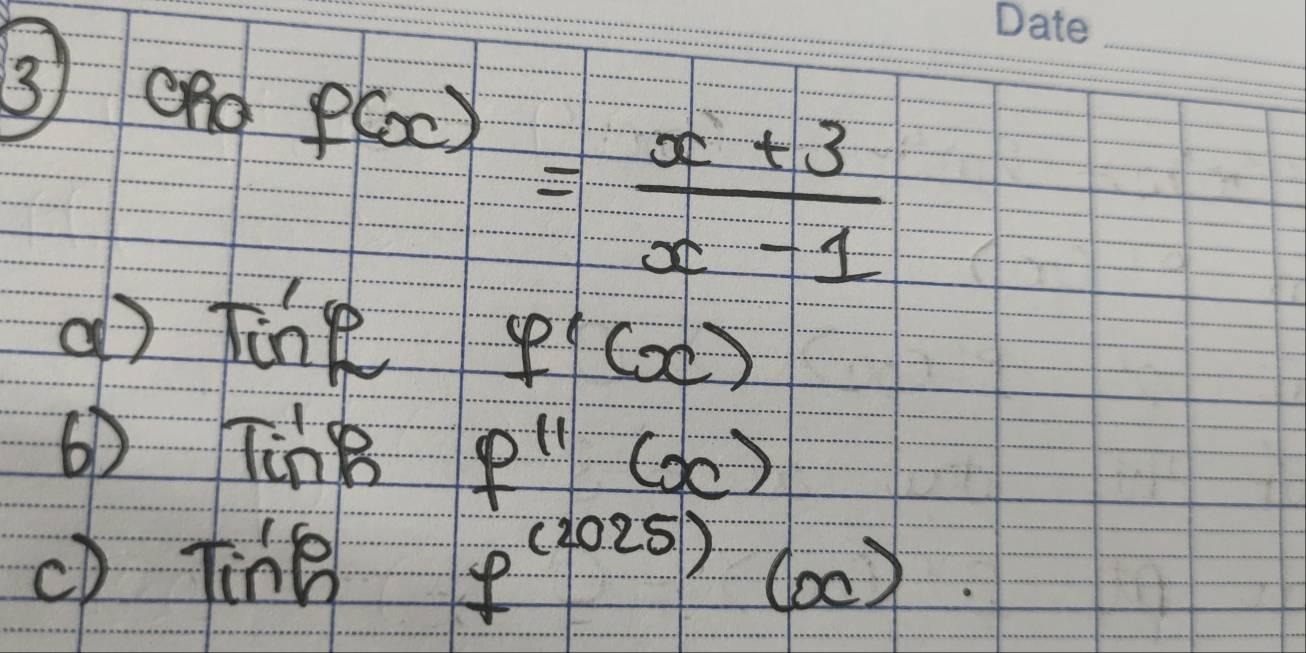 Date
③ Cho f(x) = \frac{x + 3}{x - 1}
a) Tính f'(x)
b) Tính f''(x)
c) Tính f^{(2025)}(x).